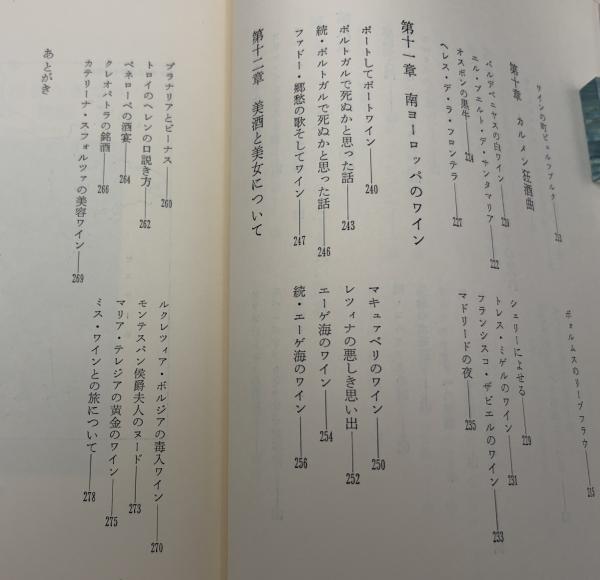 ワインの町ビュルツブルク 213
ヴォルムスのリープフラウ 215
第十章 カルメン狂酒曲
バルデペニャスの白ワイン 220
エル・プエルト・デ・サンタマリア 222
オスボンの黒牛 224
ヘレス・デ・ラ・フロンテラ 227
シェリーによせる 229
トレス・ミゲルのワイン 231
フランシスコ・ザビエルのワイン 233
マドリードの夜 235
第十一章 南ヨーロッパのワイン
ポートしてポートワイン 240
ポルトガルで死ぬかと思った話 243
続・ポルトガルで死ぬかと思った話 246
ファドー・郷愁の歌そしてワイン 247
マキュアベリのワイン 250
レツィナの悪しき思い出 252
エーゲ海のワイン 254
続・エーゲ海のワイン 256
第十二章 美酒と美女について
プラナリアとビーナス 260
トロイのヘレンの口説き方 262
ペネローペの酒宴 264
クレオパトラの銘酒 266
カテリーナ・スフォルツァの美容ワイン 269
ルクレツィア・ボルジアの毒入ワイン 270
モンテスパン侯爵夫人のヌード 273
マリア・テレジアの黄金のワイン 275
ミス・ワインとの旅について 278
あとがき